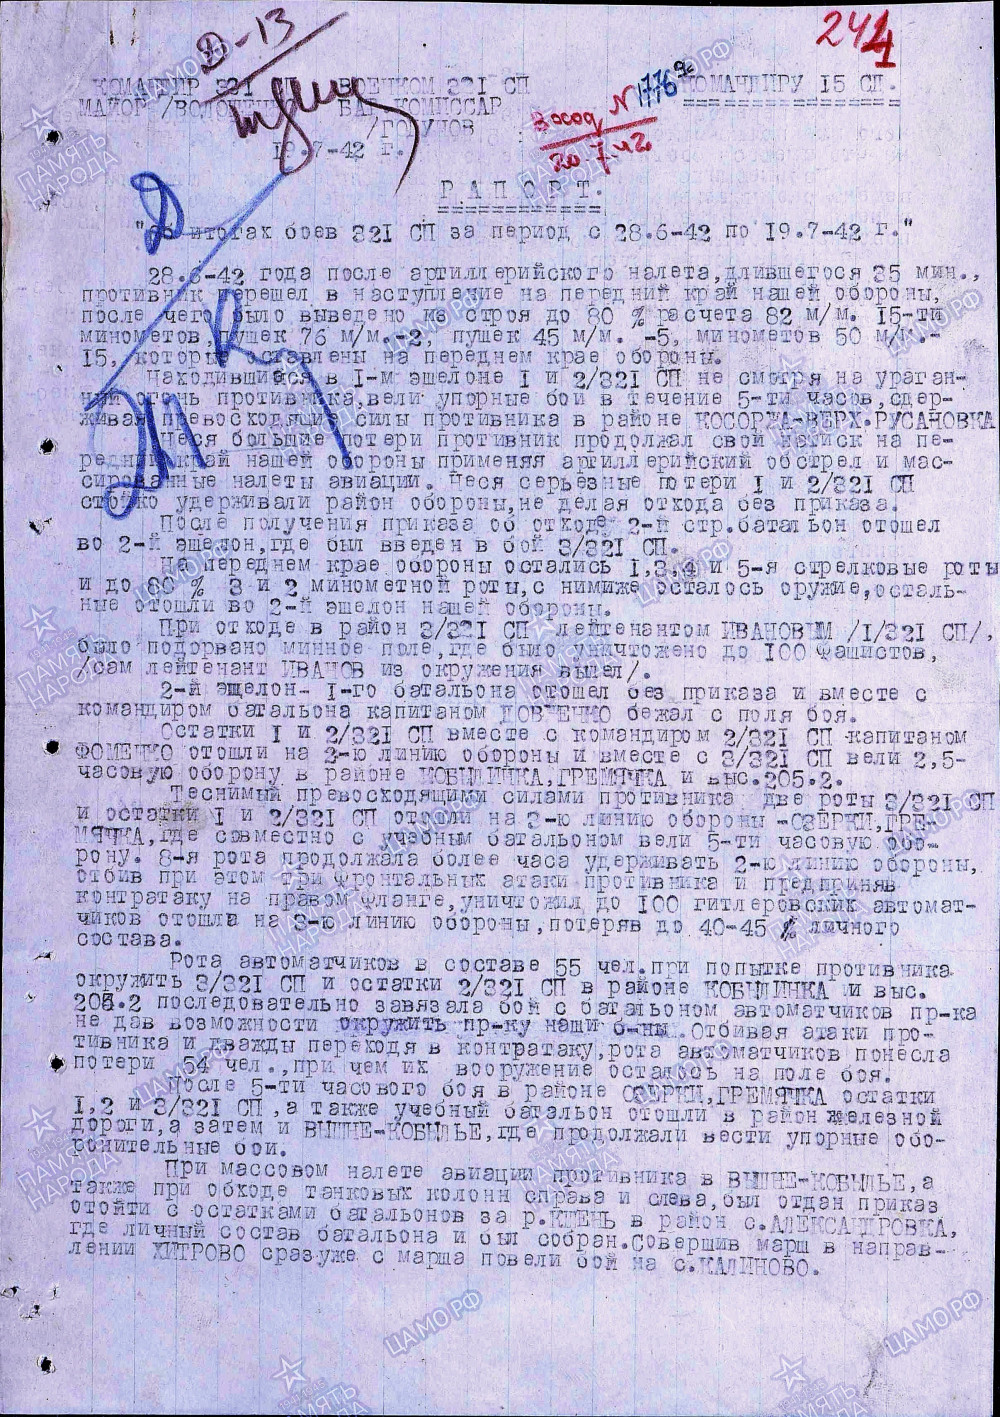 Д-13
241
КОМАНДИР 321 СП ВОЕНКОМ 321 СП КОМАНДИРУ 15 СД.
МАЙОР /ВОЛОДЕ БАТ. КОМИССАР
/ГОРУНОВ
19.7-42 г.
Вход № 1776
20.7.42.
Р А П О Р Т.
"Об итогах боев 321 СП за период с 28.6-42 по 19.7-42 Г."
28.6-42 года после артиллерийского налета,длившегося 35 мин.,
противник перешел в наступление на передний край нашей обороны,
после чего было выведено из строя до 80 % расчета 82 м/м. 15-ти
минометов, пушек 76 м/м.-2, пушек 45 м/м. -5, минометов 50 м/м.-
15, которые ставлены на переднем крае обороны.
Находившиеся в I-м эшелоне I и 2/321 СП не смотря на ураган-
ный огонь противника,вели упорные бои в течение 5-ти часов,сдер-
живая превосходящие силы противника в районе КОСОРЖА-ВЕРХ.РУСАНОВКА
Неся большие потери противник продолжал свой натиск на пе-
редний край нашей обороны применяя артиллерийский обстрел и мас-
сированные налеты авиации. Неся серьезные потери I и 2/321 СП
стойко удерживали район обороны,не делая отхода без приказа.
После получения приказа об отходе 2-й стр.батальон отошел
во 2-й эшелон,где был введен в бой 3/321 СП.
На переднем крае обороны остались 1,3,4 и 5-я стрелковые роты
и до 60 % 3 и 2 минометной роты,с нимиже осталось оружие,осталь-
ные отошли во 2-й эшелон нашей обороны.
При отходе в район 3/321 СП лейтенантом ИВАНОВЫМ /I/321 СП/,
было подорвано минное поле,где было уничтожено до 100 фашистов,
/сам лейтенант ИВАНОВ из окружения вышел/.
2-й эщелон- I-го батальона отошел без приказа и вместе с
командиром батальона капитаном бежал с поля боя.
Остатки I и 2/321 СП вместе с командиром 2/321 СП капитаном
ФОМЕЧКО отошли на 2-ю линию обороны и вместе с 3/321 СП вели 2,5-
часовую оборону в районе КОБЫЛИНКА,ГРЕМЯЧКА и выс.205.2.
Теснимый превосходящими силами противника две роты 3/321 СП
и остатки I и 2/321 СП отошли на 3-ю линию обороны -ОЗЕРКИ,ГРЕ-
МЯЧКА,где совместно с учебным батальоном вели 5-ти часовую обо-
рону. 8-я рота продолжала более часа удерживать 2-ю линию обороны,
отбив при этом три фронтальных атаки противника и предприняв
контратаку на правом фланге,уничтожил до 100 гитлеровских автомат-
чиков отошла на 3-ю линию обороны,потеряв до 40-45 % личного
состава.
Рота автоматчиков в составе 55 чел.при попытке противника
окружить 3/321 СП и остатки 2/321 СП в районе КОБЫЛИНКА и выс.
205.2 последовательно завязала бой с батальоном автоматчиков пр-ка
не дав возможности окружить пр-ку наши б-ны.Отбивая атаки про-
тивника и дважды переходя в контратаку,рота автоматчиков понесла
потери 54 чел.,при чем их вооружение осталось на поле боя.
После 5-ти часового боя в районе ОЗЕРКИ,ГРЕМЯЧКА остатки
1,2 и 3/321 СП ,а также учебный батальон отошли в район железной
дороги,а затем и ВЫШНЕ-КОБЫЛЬЕ,где продолжали вести упорные обо-
ронительные бои.
При массовом налете авиации противника в ВЫШНЕ-КОБЫЛЬЕ,а
также при обходе танковых колонн справа и слева,был отдан приказ
отойти с остатками батальонов за р.КШЕНЬ в район с.АЛЕКСАНДРОВКА,
где личный состав батальона и был собран.Совершив марш в направ-
лении ХИТРОВО сразуже с марша повели бой на с.КАЛИНОВО.